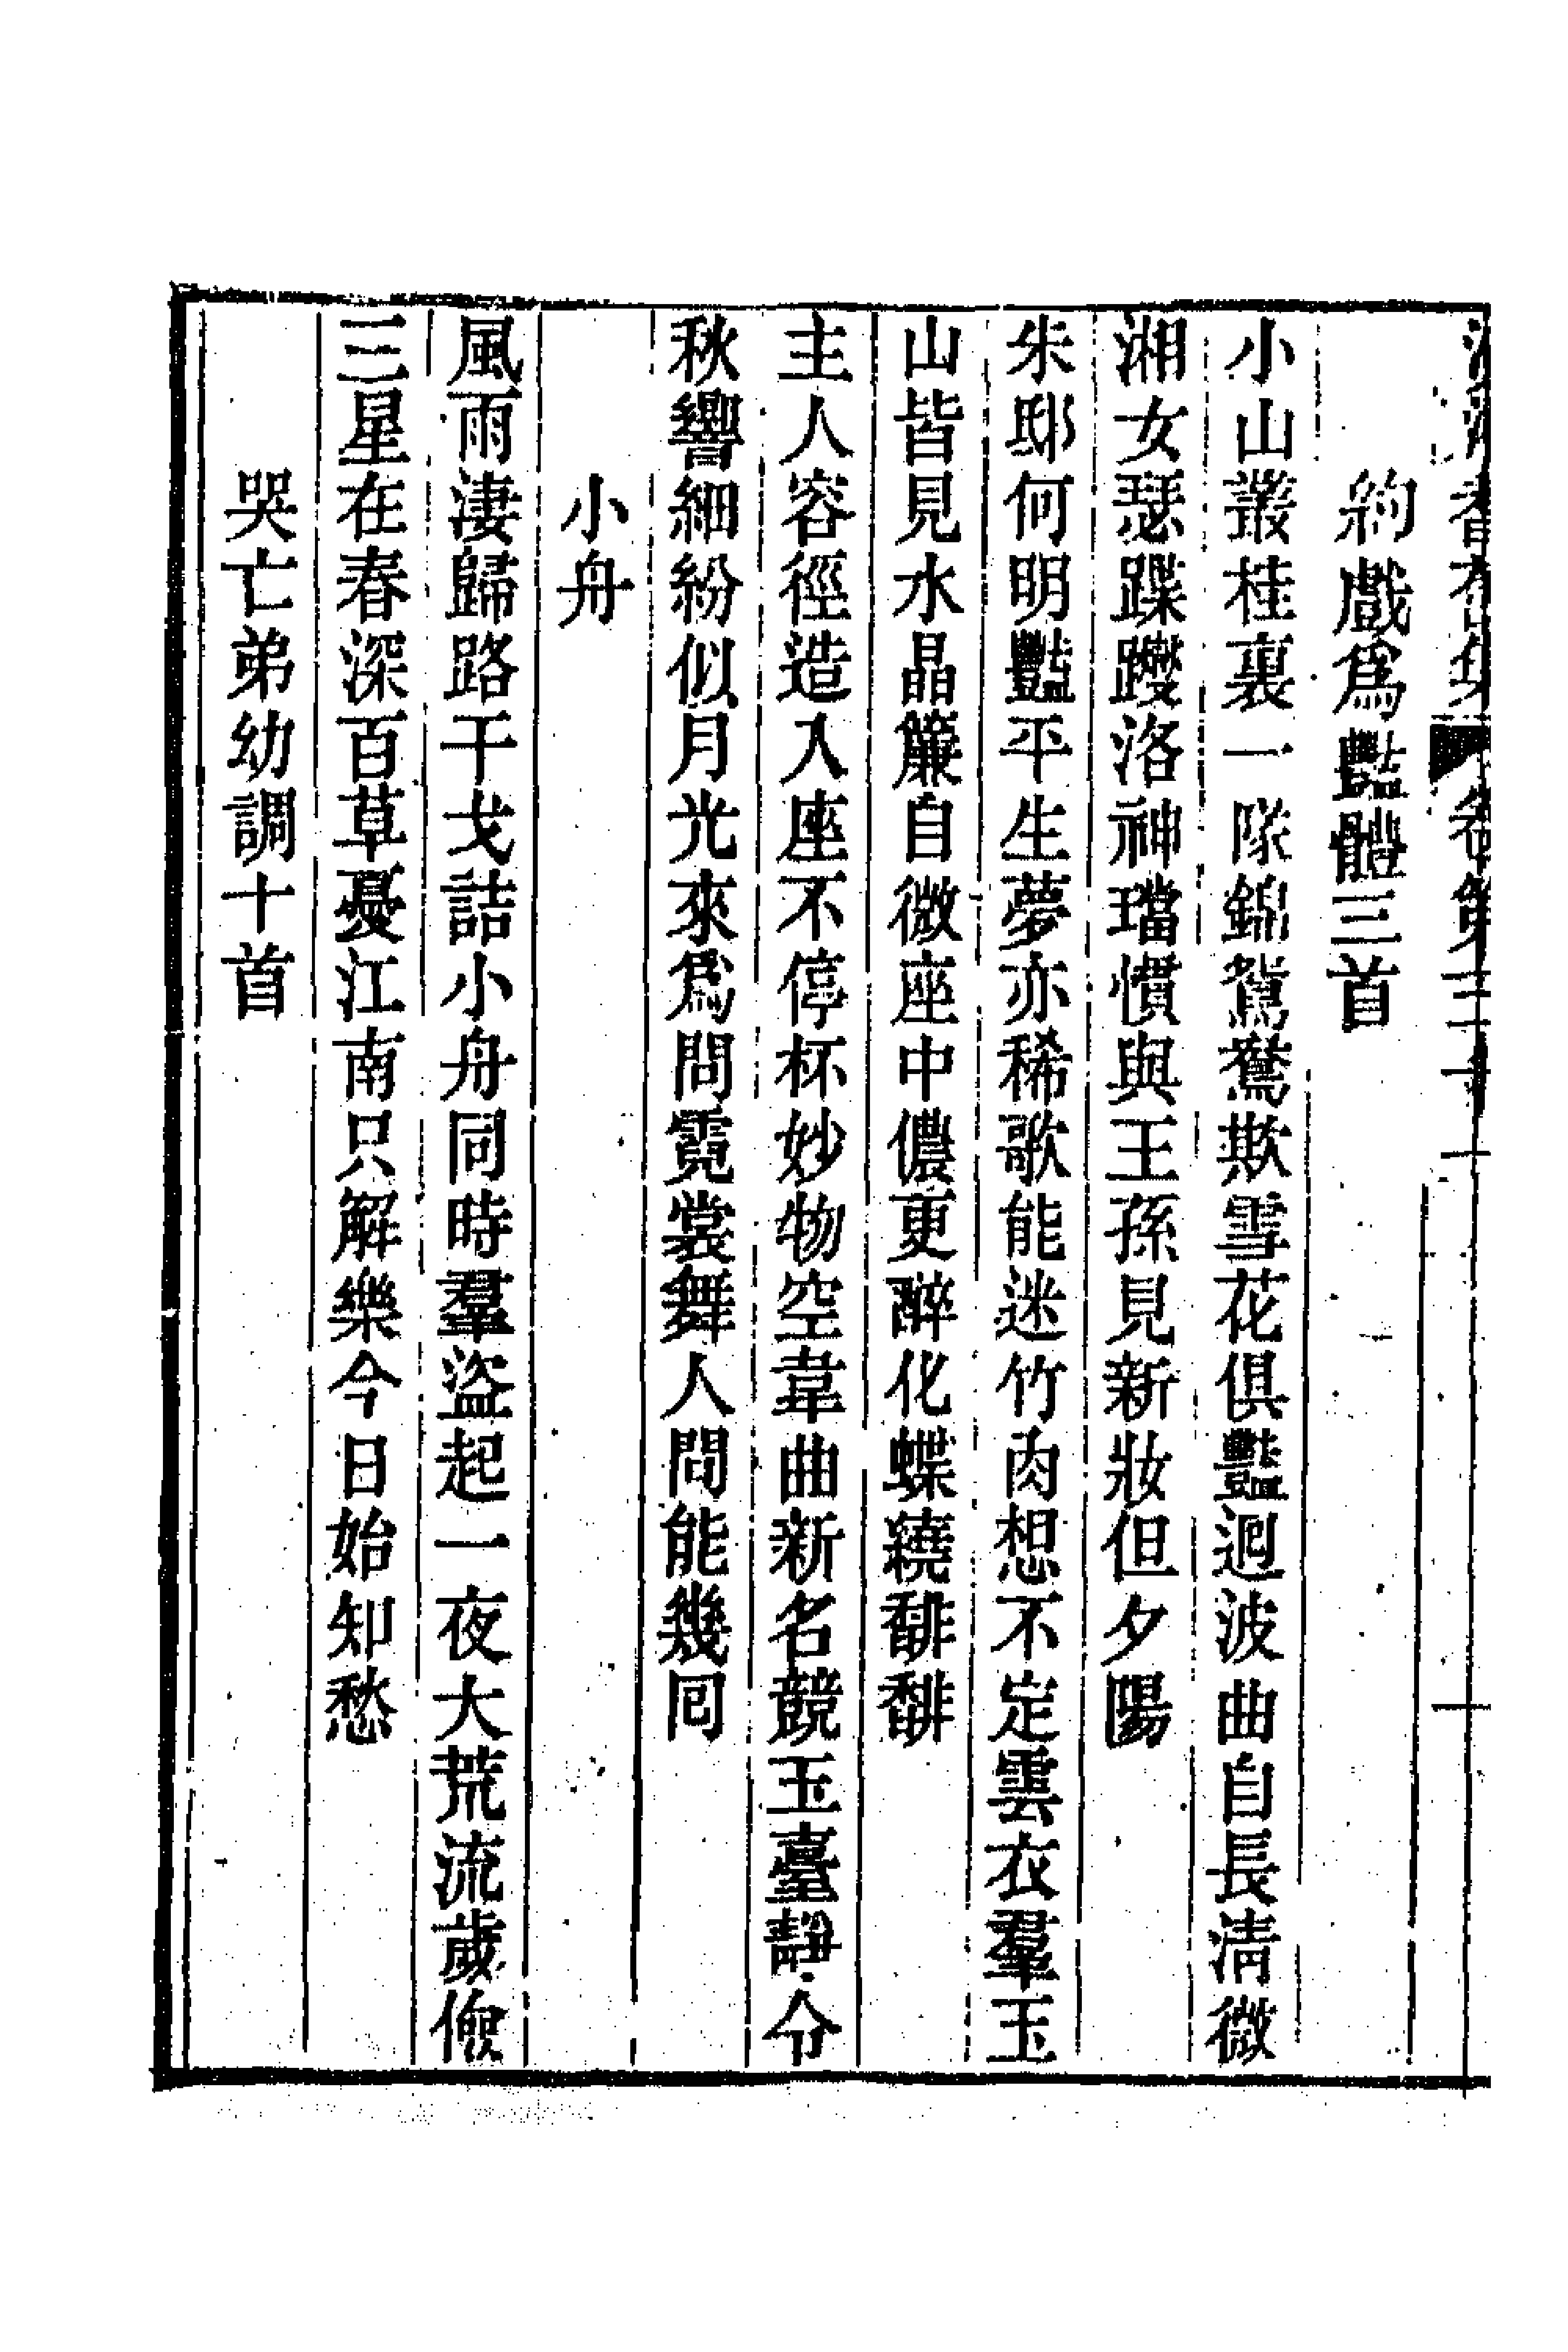 約戲爲豔體三首
小山叢桂裏一隊錦鴛鴦欺雪花俱豔迴波曲自長淸微
湘女瑟蹀躞洛神璫慣與王孫見新妝但夕陽
朱邸何明豔平生夢亦稀歌能迷竹肉想不定雲衣羣玉
山皆見水晶簾自微座中儂更醉化蝶繞馡馡
主人容徑造入座不停杯妙物空韋曲新名競玉臺靜令
秋響細紛似月光來爲問霓裳舞人間能幾囘
小舟
風雨淒歸路干戈詰小舟同時羣盜起一夜大荒流歲儉
三星在春深百草憂江南只解樂今日始知愁
哭亡弟幼調十首